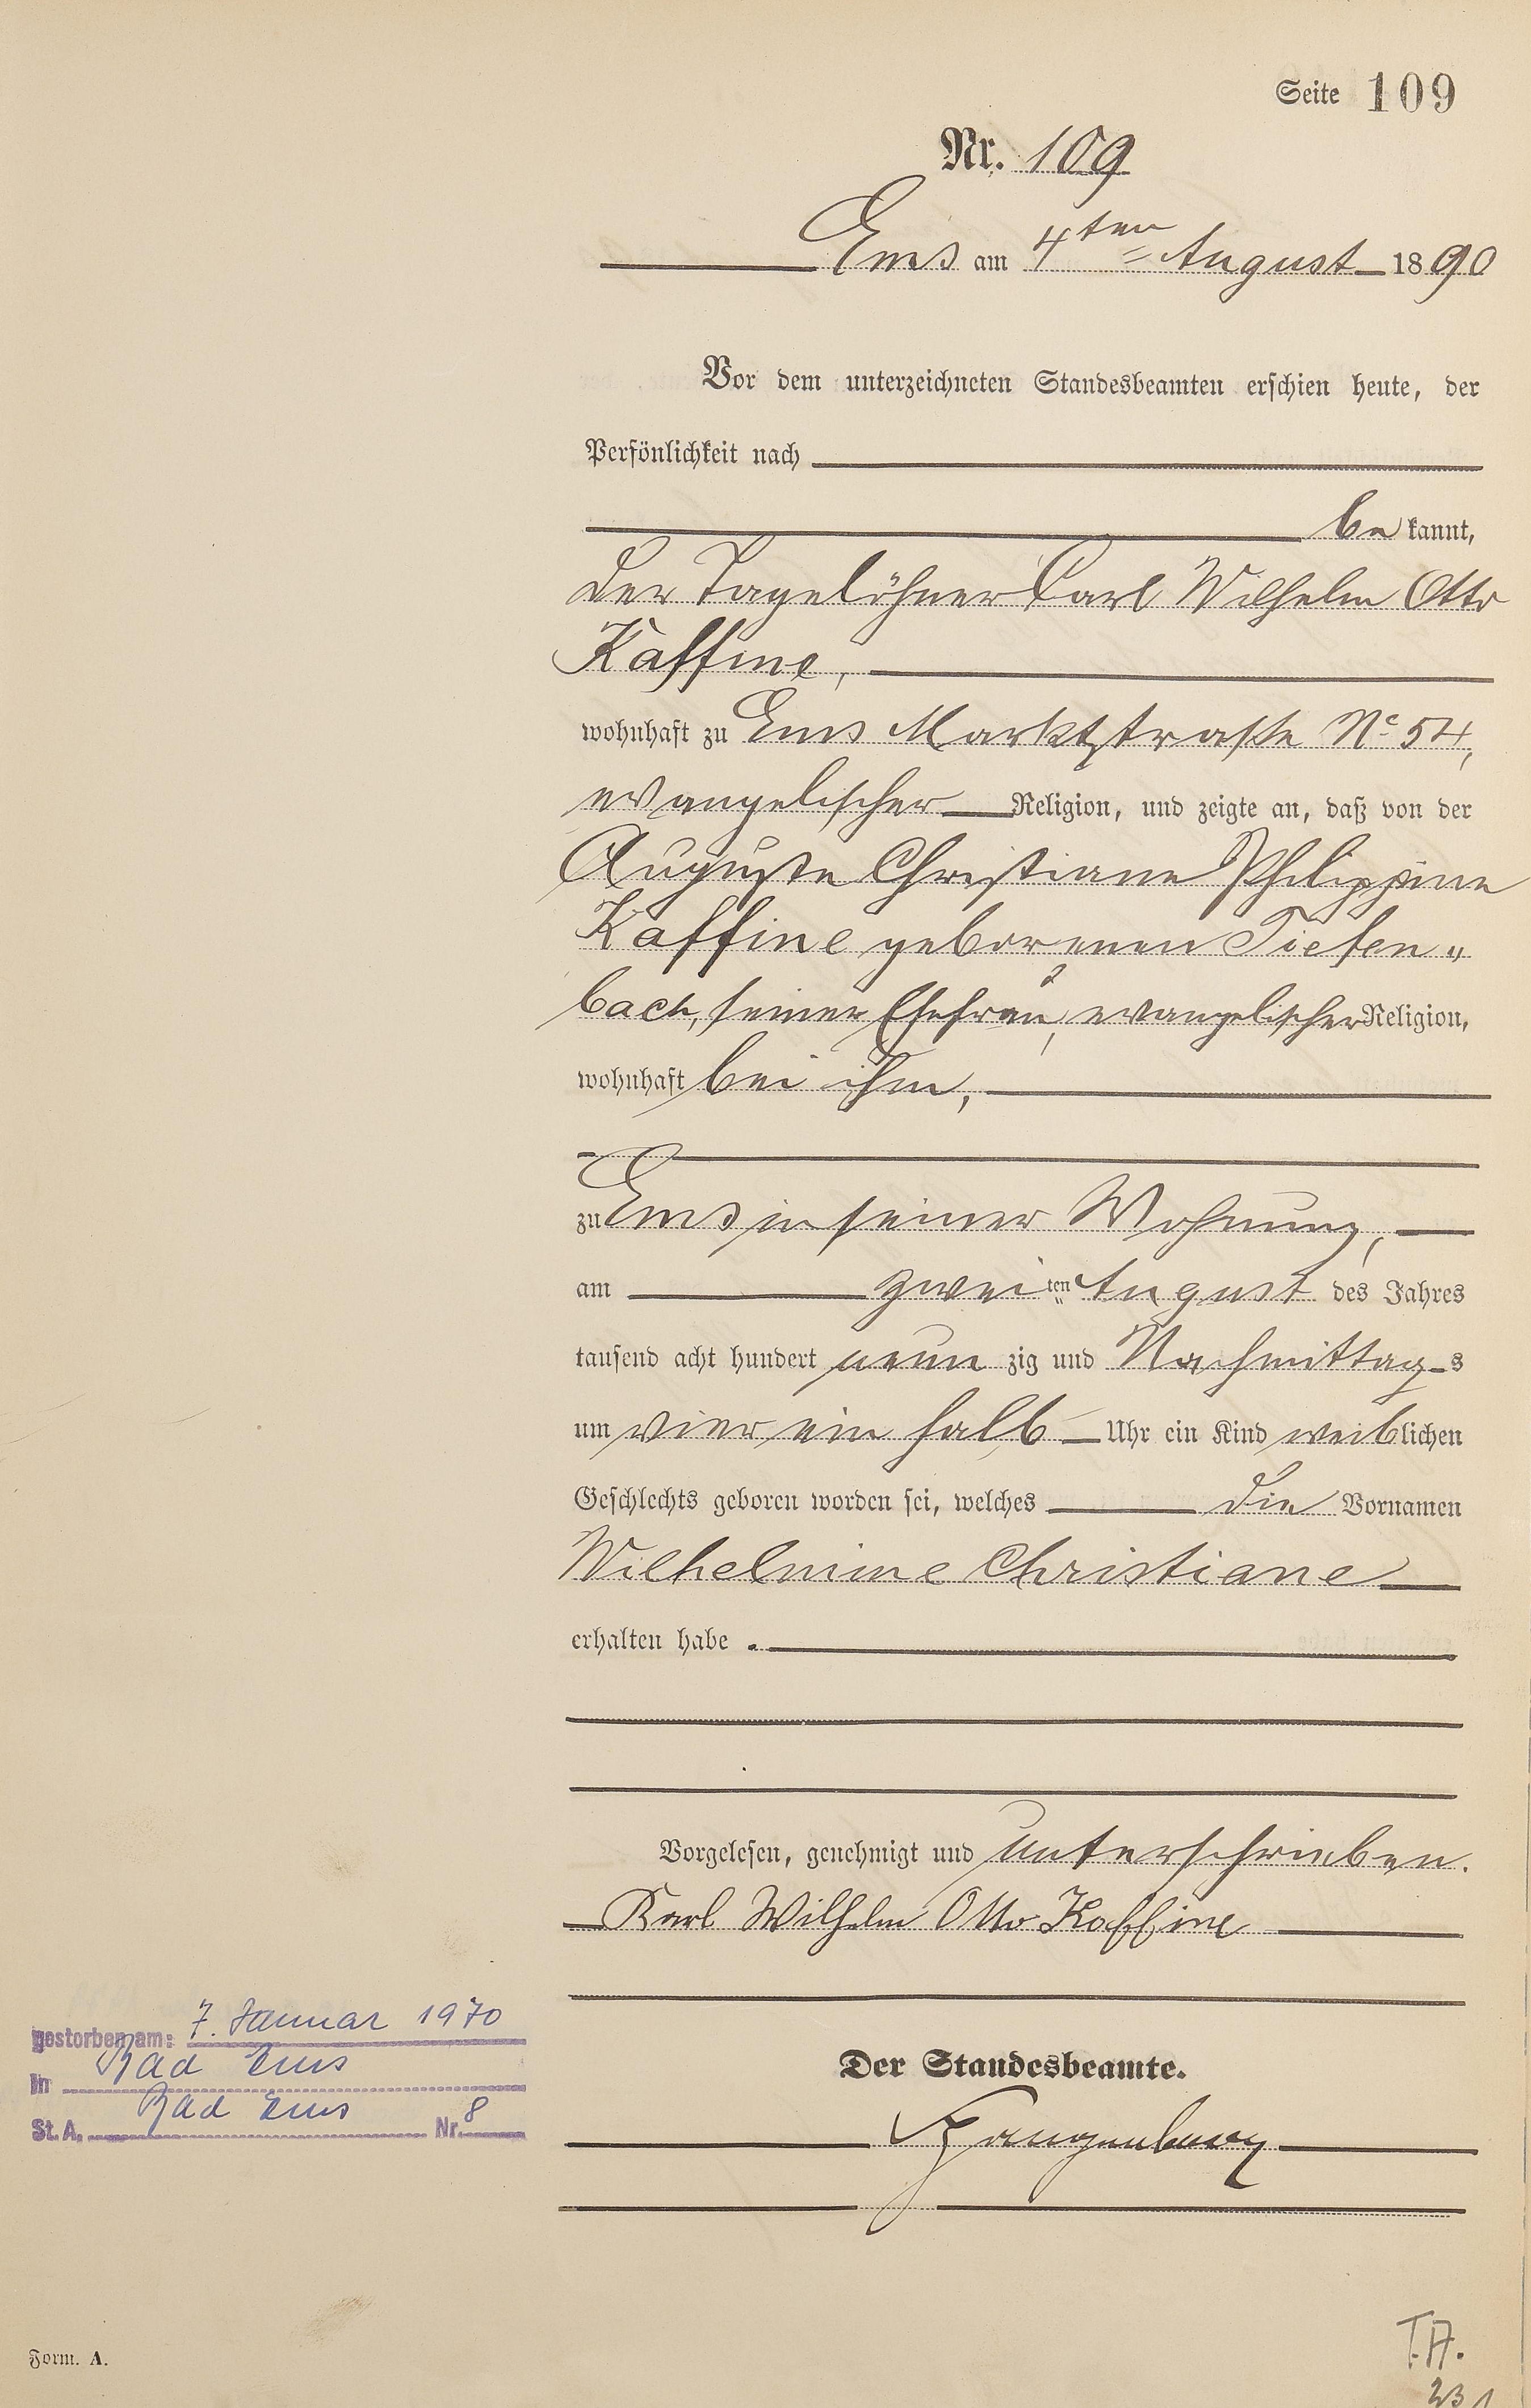 Seite 109
Nr. 109
Ems am 4ten August 1890
Vor dem unterzeichneten Standesbeamten erschien heute, der
Persönlichkeit nach
be kannt,
der Tagelöhner Carl Wilhelm Otto
Kaffine,
wohnhaft zu Ems Marktstraße No 54,
evangelischer Religion, und zeigte an, daß von der
Auguste Christiane Philippine
Kaffine geborenen Tiefen„
bach, seiner Ehefrau, evangelischer Religion,
wohnhaft bei ihm,
zu Ems in seiner Wohnung,
am zwei ten August des Jahres
tausend acht hundert neun zig und Nachmittag s
um vier ein halb Uhr ein Kind weiblichen
Geschlechts geboren worden sei, welches die Vornamen
Wilhelmine Christiane
erhalten habe.
Vorgelesen, genehmigt und unterschrieben.
Karl Wilhelm Otto Kaffine
gestorben am: 7. Januar 1970
in Bad Ems
St. A. Bad Ems Nr. 8
Der Standesbeamte.
Form. A.
T.A.